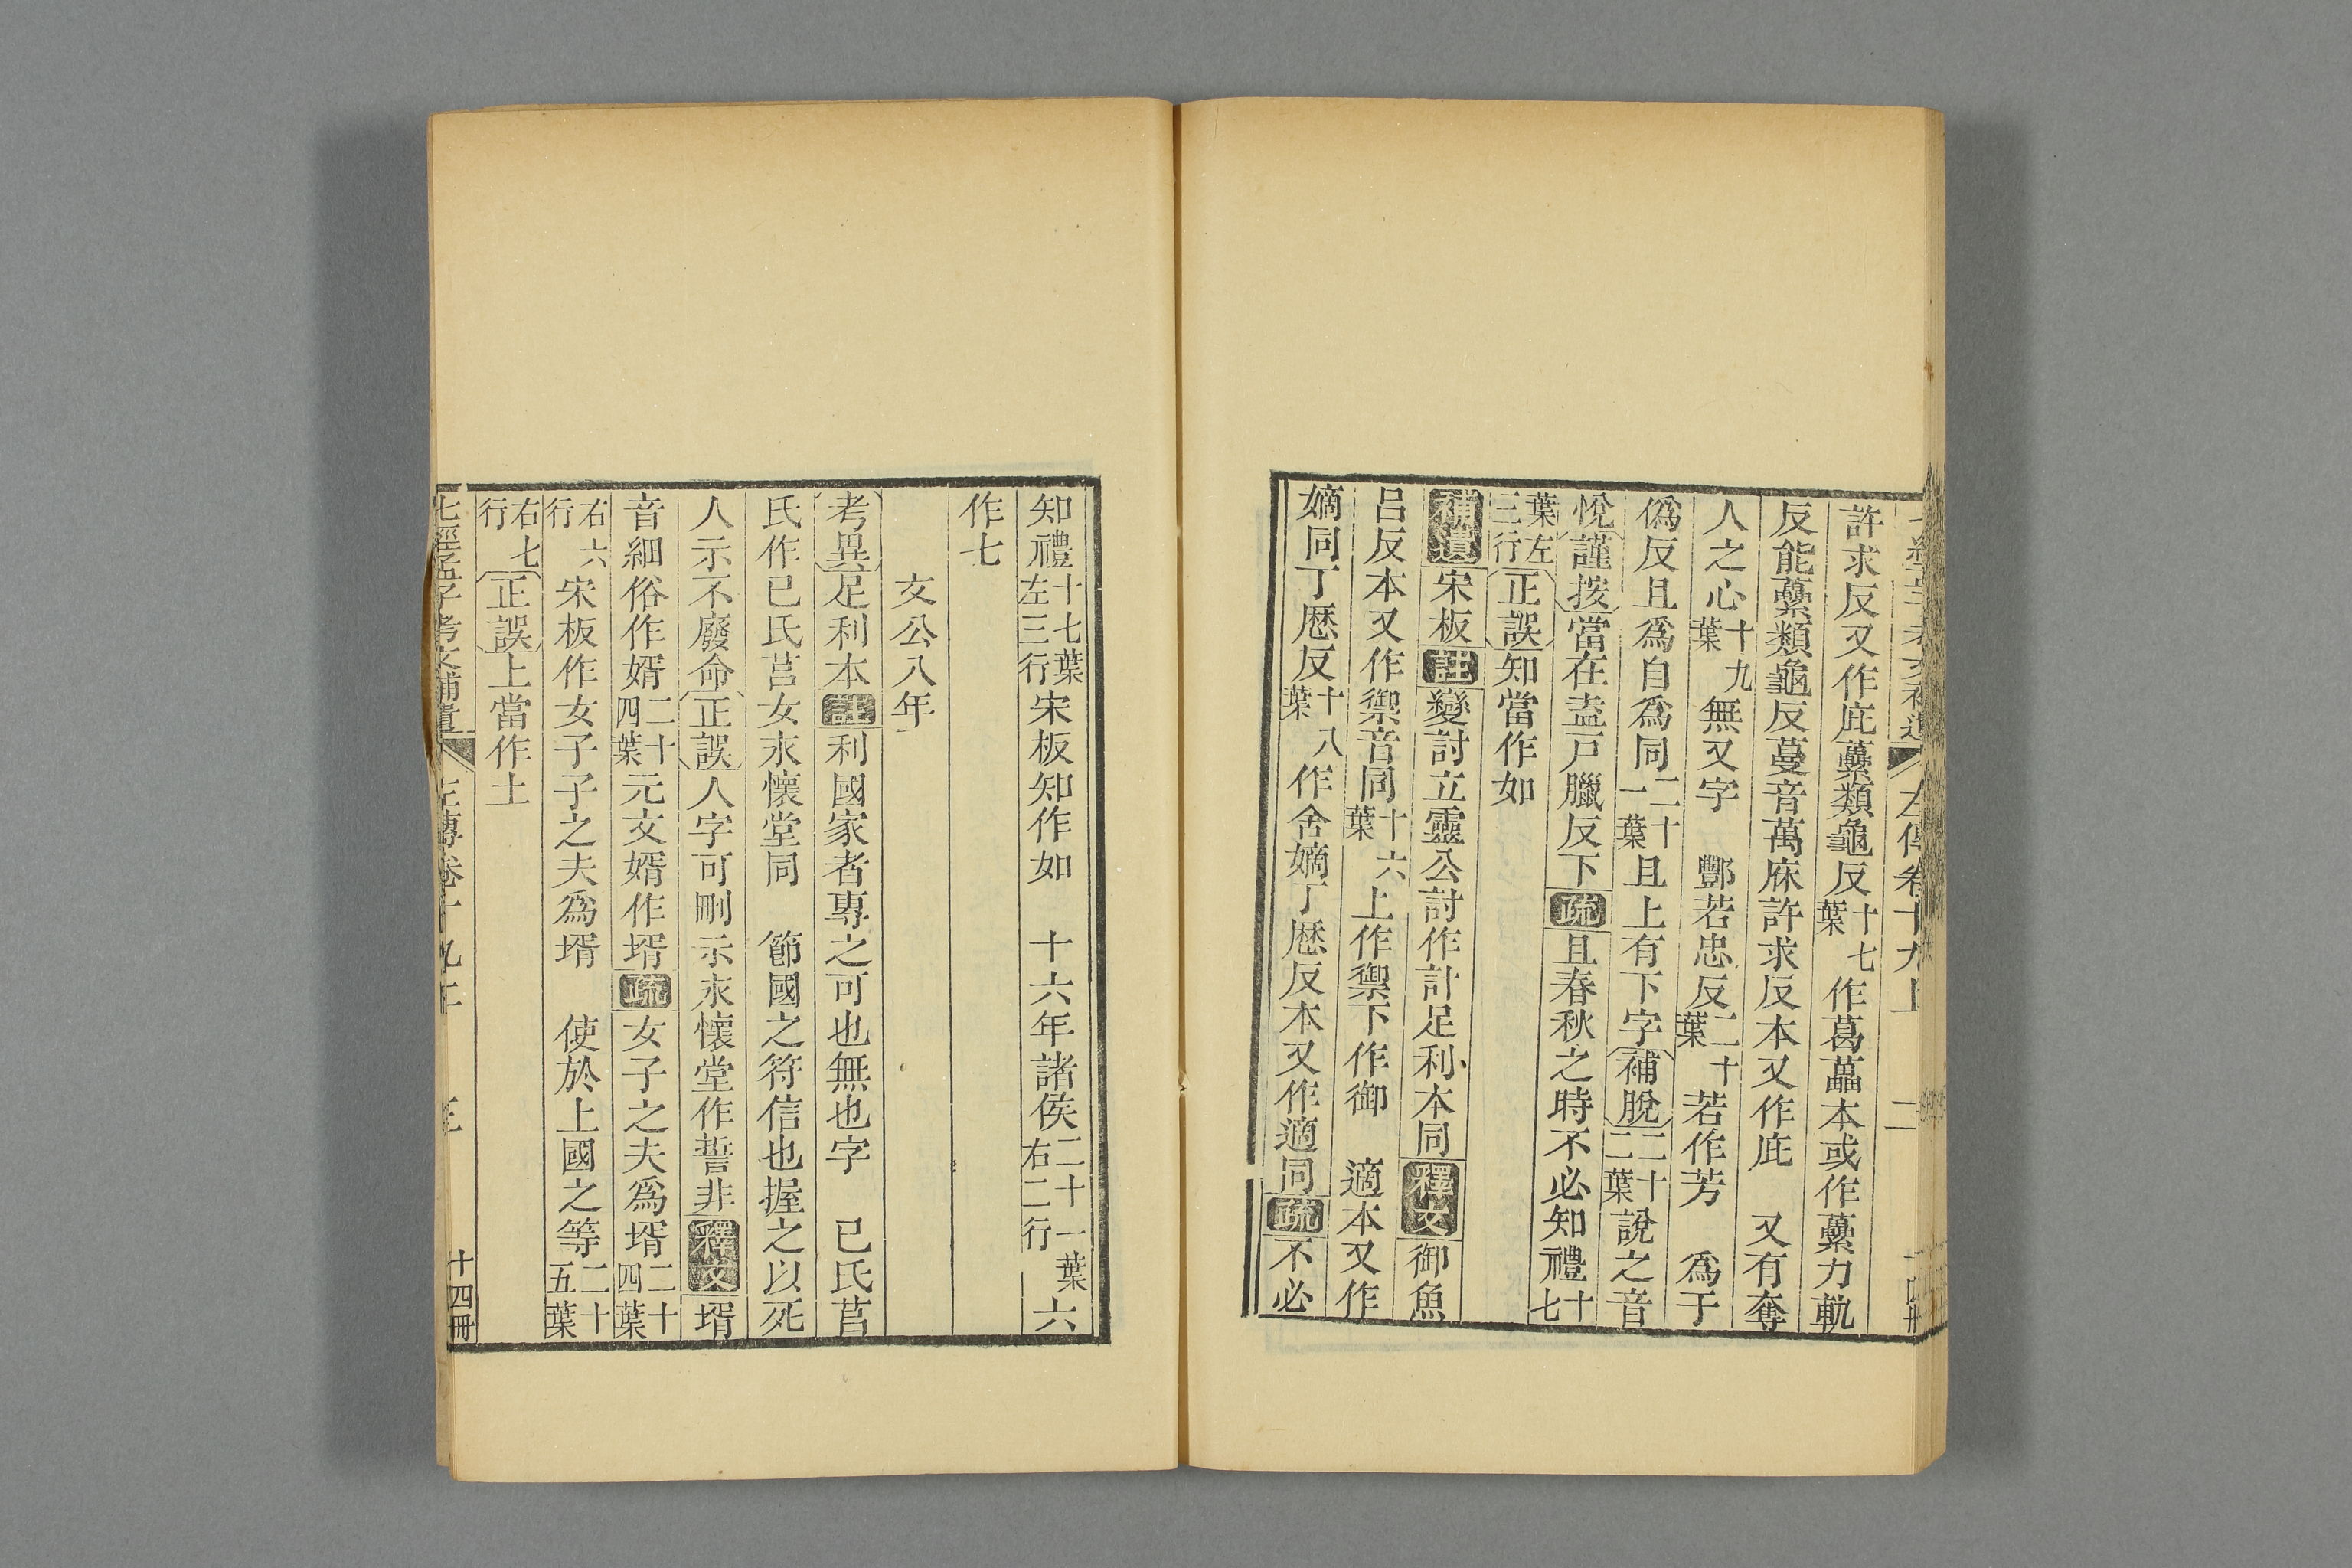 許求反又作庇虆類龜反十七葉作葛藟本或作虆力軌
反能虆類龜反蔓音萬庥許求反本又作庇　又有奪
人之心十九葉無又字　酆若忠反二十葉若作芳　爲于
僞反且爲自爲同二十一葉且上有下字補脫二十二葉說之音
悅謹按當在盍戸臘反下疏且春秋之時不必知禮十七
葉左三行正誤知當作如
補遺宋板註變討立靈公討作計足利本同釋文御魚
呂反本又作禦音同十六葉上作禦下作御　適本又作
嫡同丁歷反十八葉作舍嫡丁歷反本又作適同疏不必
知禮十七葉左三行宋板知作如　十六年諸侯二十一葉右二行六
作七
文公八年
考異足利本註利國家者專之可也無也字　已氏莒
氏作已氏莒女永懷堂同　節國之符信也握之以死
人示不廢命正誤人字可刪示永懷堂作誓非釋文壻
音細俗作婿二十四葉元文婿作壻疏女子之夫爲壻二十四葉
右六行宋板作女子子之夫爲壻　使於上國之等二十五葉
右七行正誤上當作土
七經孟子考文補遺　左傳卷十九上　十四冊